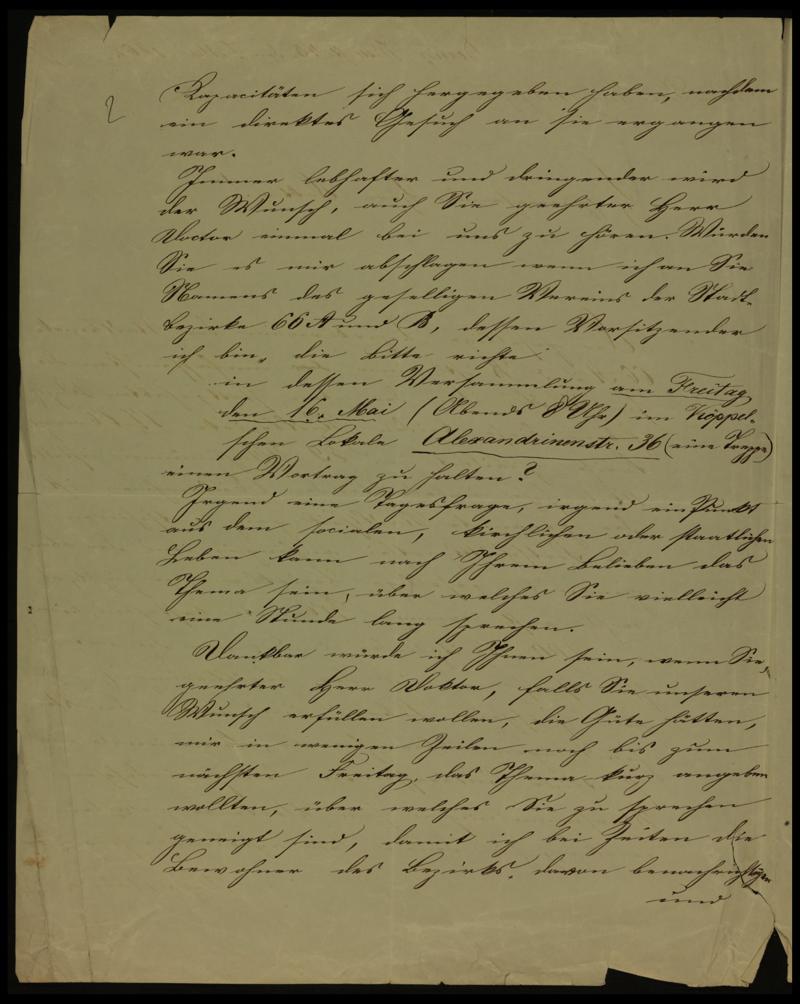 2
Kapacitäten sich hergegeben haben, nachdem
ein direktes Gesuch an sie ergangen
war.
Immer lebhafter und dringender wird
der Wunsch, auch Sie geehrter Herr
Doctor einmal bei uns zu hören. Würden
Sie es mir abschlagen wenn ich an Sie
Namens des geselligen Vereins der Stadt-
bezirke 66 A und B, dessen Vorsitzender
ich bin, die Bitte richte
in dessen Versammlung am Freitag
den 16. Mai (Abends 8 Uhr) im Köppel-
schen Lokale Alexandrinenstr. 36 (eine Treppe)
einen Vortrag zu halten?
Irgend eine Tagesfrage, irgend ein Punkt
aus dem socialen, kirchlichen oder staatlichen
Leben kann nach Ihrem Belieben das
Thema sein, über welches Sie vielleicht
eine Stunde lang sprechen.
Dankbar würde ich Ihnen sein, wenn Sie,
geehrter Herr Doktor, falls Sie unseren
Wunsch erfüllen wollen, die Güte hätten,
mir in wenigen Zeilen noch bis zum
nächsten Freitag, das Thema kurz angeben
wollten, über welches Sie zu sprechen
geneigt sind, damit ich bei Zeiten die
Bewohner des Bezirks, davon benachrichtigen
und